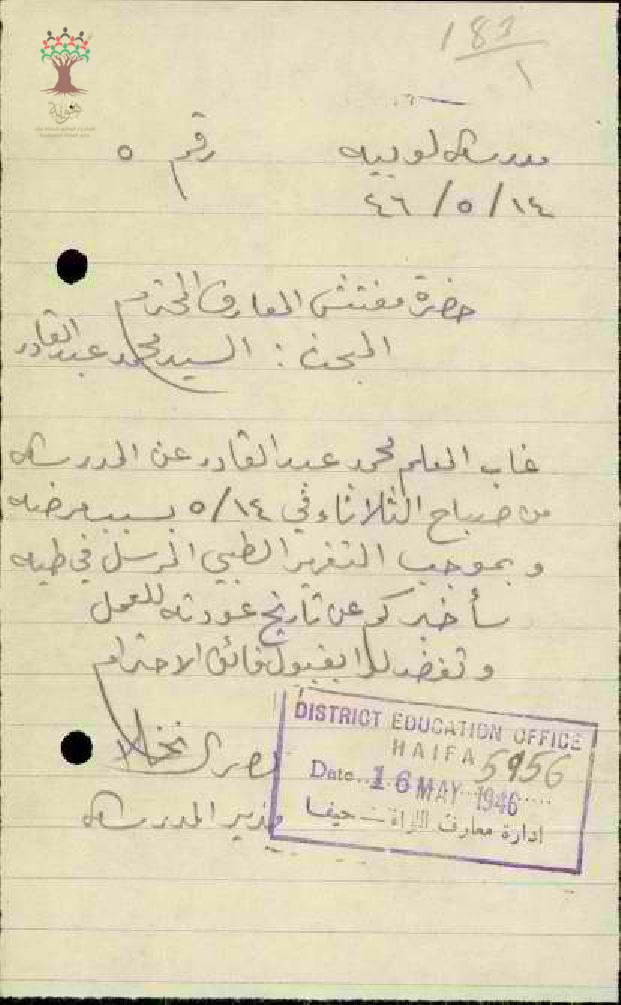 183/1
هوية
مدرسة لوبيه رقم ٥
١٤/٥/٤٦
حضرة مفتش المعارف المحترم
المبحث : السيد محمد عبد القادر
غاب المعلم محمد عبد القادر عن المدرسة
من صباح الثلاثاء في ١٤/٥ بسبب مرضه
و بموجب التقرير الطبي المرسل في طيه
سأخبركم عن تاريخ عودته للعمل
و تفضلوا بقبول فائق الاحترام
نخلا
مدير المدرسة
DISTRICT EDUCATION OFFICE
HAIFA 5956
Date 16 MAY 1946
ادارة معارف اللواء – حيفا